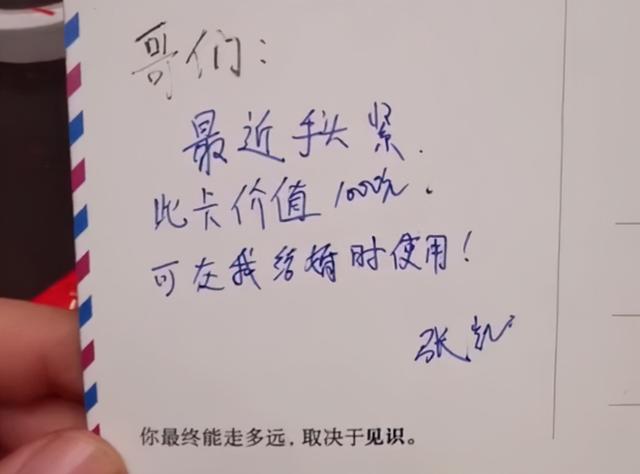 哥们：
最近手头紧.
此卡价值1000元.
可在我结婚时使用！
张凯
你最终能走多远，取决于见识。